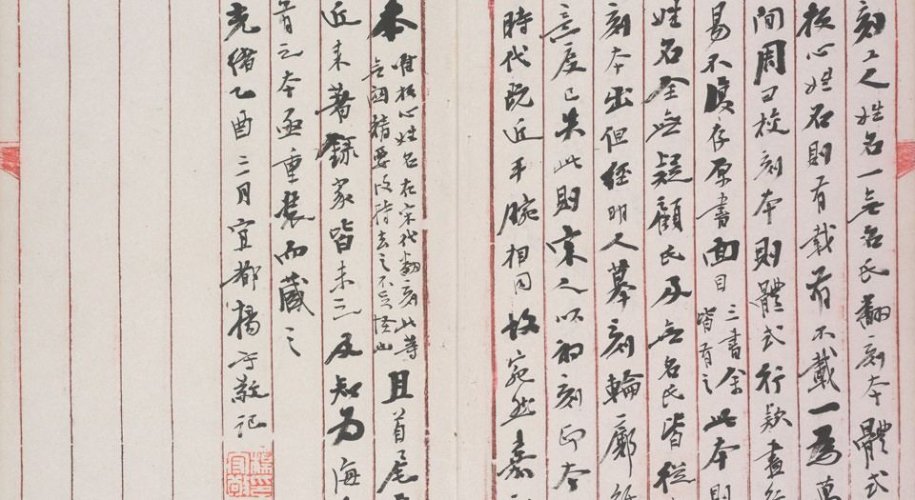 刻工之姓名一無名氏翻刻本體式
板心姓名則有載有不載一爲萬
間周曰校刻本則體式行款盡
易不復存原書面目三書余皆有之此本則
姓名全無疑顧氏及無名氏皆從
刻本出但經明人摹刻輪廓
意度已失此則宋人以初刻印本
時代既近手腕相同故宛然嘉
本唯板心姓名在宋代翻刻此等無關精要故特去之不足怪也且首尾
近來著錄家皆未之及知爲海
有之本亟重裝而藏之
光緒乙酉二月宜都楊守敬記